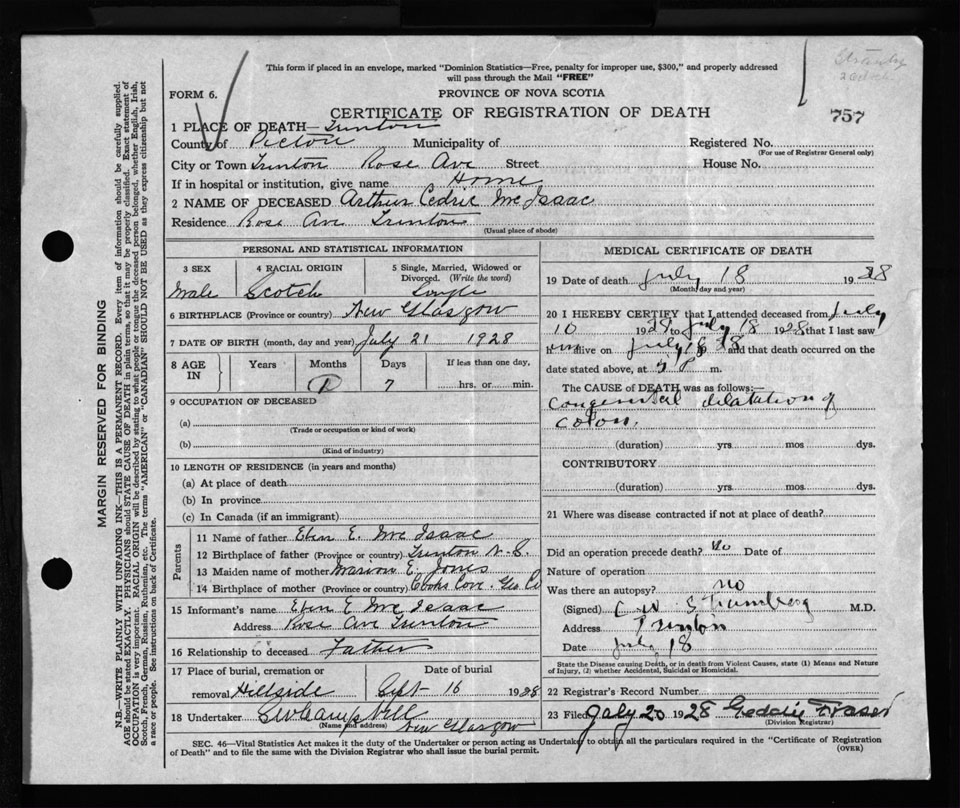 This form if placed in an envelope, marked "Dominion Statistics—Free, penalty for improper use, $300," and properly addressed
will pass through the Mail "FREE"
FORM 6.
PROVINCE OF NOVA SCOTIA
CERTIFICATE OF REGISTRATION OF DEATH
757
1 PLACE OF DEATH—Trenton
County of Pictou Municipality of Registered No.
(For use of Registrar General only)
City or Town Trenton Rose Ave Street House No.
If in hospital or institution, give name Home
2 NAME OF DECEASED Arthur Cedric McIsaac
Residence Rose Ave Trenton
(Usual place of abode)
PERSONAL AND STATISTICAL INFORMATION
3 SEX 4 RACIAL ORIGIN 5 Single, Married, Widowed or
Divorced. (Write the word)
Male Scotch Single
6 BIRTHPLACE (Province or country) New Glasgow
7 DATE OF BIRTH (month, day and year) July 21 1928
8 AGE IN Years Months Days If less than one day,
7 hrs. or min.
9 OCCUPATION OF DECEASED
(a)
(Trade or occupation or kind of work)
(b)
(Kind of industry)
10 LENGTH OF RESIDENCE (in years and months)
(a) At place of death
(b) In province
(c) In Canada (if an immigrant)
Parents
11 Name of father Eben E. McIsaac
12 Birthplace of father (Province or country) Trenton N.S.
13 Maiden name of mother Marion E. Jones
14 Birthplace of mother (Province or country) Cooks Cove Co
15 Informant's name Eben E McIsaac
Address Rose Ave Trenton
16 Relationship to deceased Father
17 Place of burial, cremation or Date of burial
removal Hillside Sept 16 1928
18 Undertaker Campbell
(Name and address) New Glasgow
MEDICAL CERTIFICATE OF DEATH
19 Date of death July 18 1928
(Month, day and year)
20 I HEREBY CERTIFY that I attended deceased from July
10 1928 to July 18 1928 that I last saw
him alive on July 18 and that death occurred on the
date stated above, at 5 P m.
The CAUSE of DEATH was as follows:—
Congenital dilatation of
colon.
(duration) yrs. mos. dys.
CONTRIBUTORY
(duration) yrs. mos. dys.
21 Where was disease contracted if not at place of death?
Did an operation precede death? No Date of
Nature of operation
Was there an autopsy? no
(Signed) C W M.D.
Address Trenton
Date July 18
State the Disease causing Death, or in death from Violent Causes, state (1) Means and Nature
of Injury, (2) whether Accidental, Suicidal or Homicidal.
22 Registrar's Record Number
23 Filed July 20 1928 Geddie Fraser
(Division Registrar)
SEC. 46—Vital Statistics Act makes it the duty of the Undertaker or person acting as Undertaker to obtain all the particulars required in the "Certificate of Registration
of Death" and to file the same with the Division Registrar who shall issue the burial permit.
(OVER)
MARGIN RESERVED FOR BINDING
N.B.—WRITE PLAINLY WITH UNFADING INK—THIS IS A PERMANENT RECORD. Every item of information should be carefully supplied.
AGE should be stated EXACTLY. PHYSICIANS should STATE CAUSE OF DEATH in plain terms, so that it may be properly classified. Exact statement of
OCCUPATION is very important. RACIAL ORIGIN will be described by stating to what people or tongue the deceased person belonged, whether English, Irish,
Scotch, French, German, Russian, Ruthenian, etc. The terms "AMERICAN" or "CANADIAN" SHOULD NOT BE USED as they express citizenship but not
a race or people. See instructions on back of Certificate.